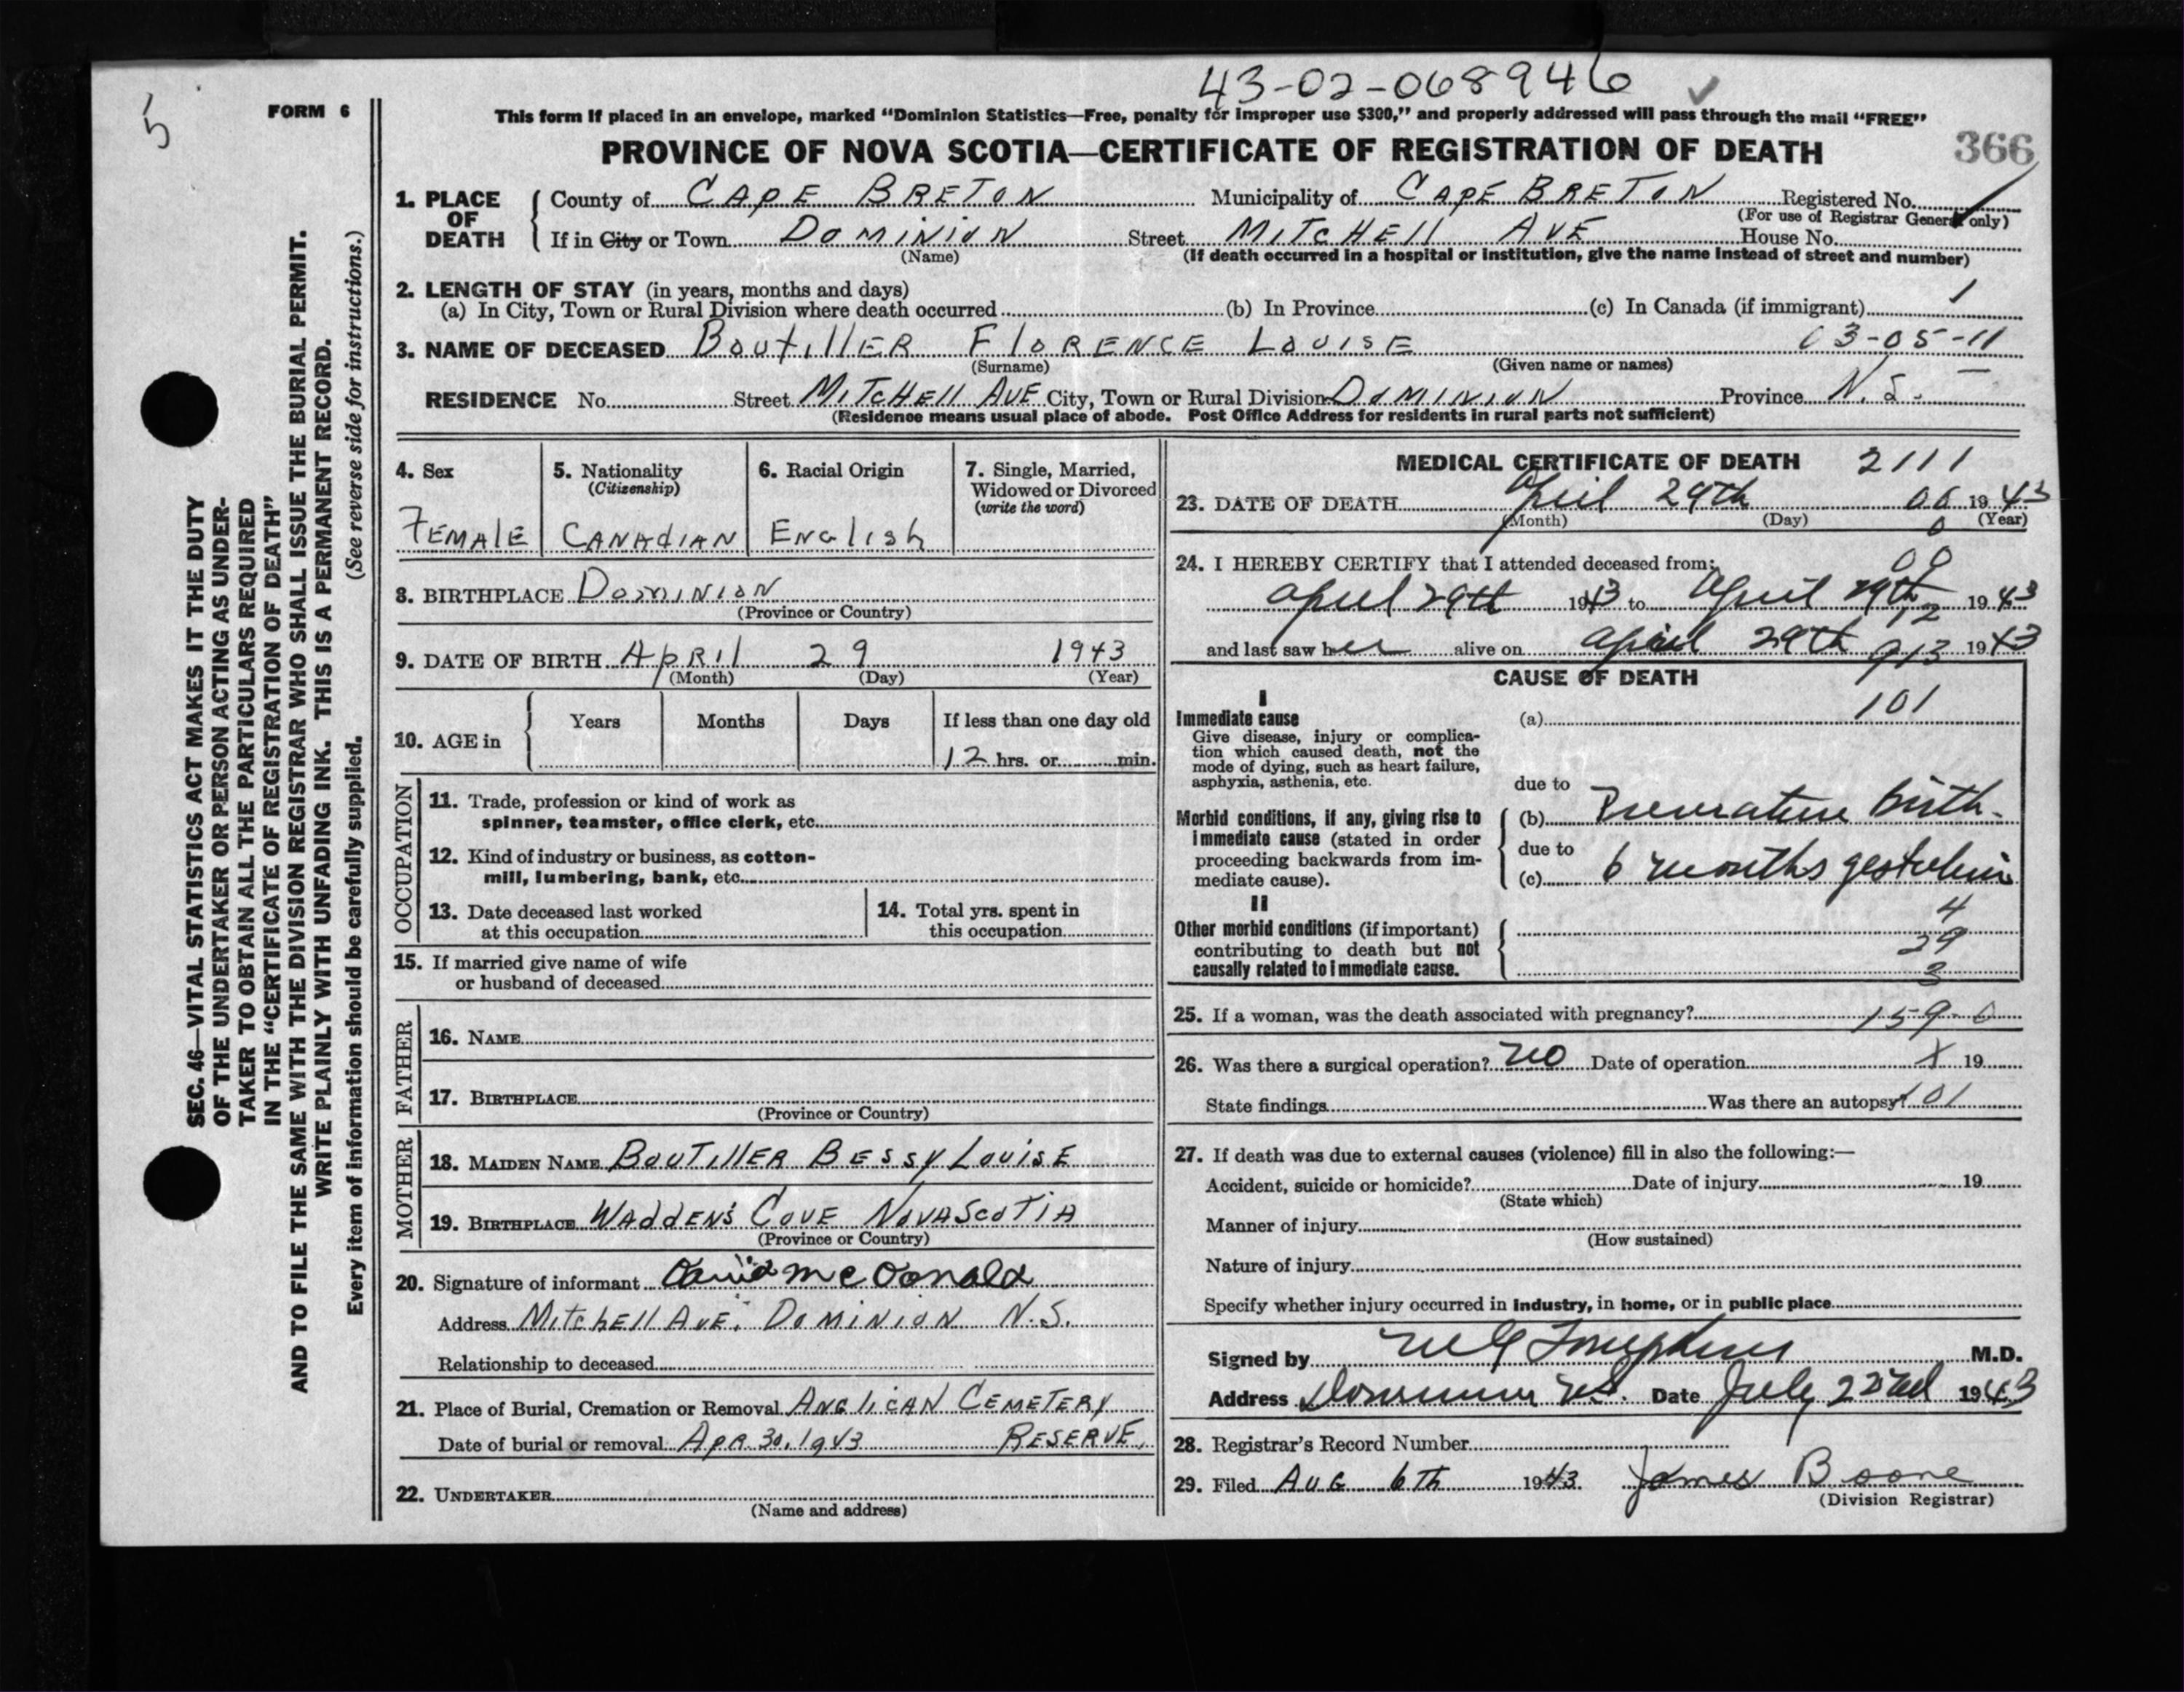 43-02-068946
5
FORM 6
This form if placed in an envelope, marked "Dominion Statistics—Free, penalty for improper use $300," and properly addressed will pass through the mail "FREE"
PROVINCE OF NOVA SCOTIA—CERTIFICATE OF REGISTRATION OF DEATH
366
1. PLACE OF DEATH
County of CAPE BRETON Municipality of CAPE BRETON Registered No.
(For use of Registrar General only)
If in City or Town DOMINION Street MITCHEll AVE House No.
(Name) (If death occurred in a hospital or institution, give the name instead of street and number)
2. LENGTH OF STAY (in years, months and days)
(a) In City, Town or Rural Division where death occurred (b) In Province (c) In Canada (if immigrant) 1
3. NAME OF DECEASED BoutillER FloRENCE LOUISE 03-05-11
(Surname) (Given name or names)
RESIDENCE No. Street MITCHEll AVE City, Town or Rural Division DOMINION Province N.S.
(Residence means usual place of abode. Post Office Address for residents in rural parts not sufficient)
SEC. 46—VITAL STATISTICS ACT MAKES IT THE DUTY
OF THE UNDERTAKER OR PERSON ACTING AS UNDER-
TAKER TO OBTAIN ALL THE PARTICULARS REQUIRED
IN THE "CERTIFICATE OF REGISTRATION OF DEATH"
AND TO FILE THE SAME WITH THE DIVISION REGISTRAR WHO SHALL ISSUE THE BURIAL PERMIT.
WRITE PLAINLY WITH UNFADING INK. THIS IS A PERMANENT RECORD.
Every item of information should be carefully supplied. (See reverse side for instructions.)
4. Sex
FEMAlE
5. Nationality
(Citizenship)
CANAdIAN
6. Racial Origin
ENGlish
7. Single, Married,
Widowed or Divorced
(write the word)
8. BIRTHPLACE DOMINION
(Province or Country)
9. DATE OF BIRTH ApRIl 29 1943
(Month) (Day) (Year)
10. AGE in Years Months Days If less than one day old
12 hrs. or min.
OCCUPATION
11. Trade, profession or kind of work as
spinner, teamster, office clerk, etc.
12. Kind of industry or business, as cotton-
mill, lumbering, bank, etc.
13. Date deceased last worked
at this occupation
14. Total yrs. spent in
this occupation
15. If married give name of wife
or husband of deceased
FATHER
16. NAME
17. BIRTHPLACE
(Province or Country)
MOTHER
18. MAIDEN NAME BouTillER BESSY LouiSE
19. BIRTHPLACE WAddEN'S COVE NOVA SCOTIA
(Province or Country)
20. Signature of informant David McDonald
Address MITchEll AVE. DOMINION N.S.
Relationship to deceased
21. Place of Burial, Cremation or Removal ANGliCAN CEMETERY
Date of burial or removal APR 30, 1943 RESERVE.
22. UNDERTAKER
(Name and address)
MEDICAL CERTIFICATE OF DEATH 2111
23. DATE OF DEATH April 29th 00 1943
(Month) (Day) 0 (Year)
24. I HEREBY CERTIFY that I attended deceased from: 00
April 29th 1943 to April 29th 1943
12
and last saw her alive on April 29th 1943
913
CAUSE OF DEATH
I
Immediate cause
Give disease, injury or complica-
tion which caused death, not the
mode of dying, such as heart failure,
asphyxia, asthenia, etc.
(a) 101
due to
Morbid conditions, if any, giving rise to
immediate cause (stated in order
proceeding backwards from im-
mediate cause).
(b) Premature birth.
due to
(c) 6 months gestation
II
Other morbid conditions (if important)
contributing to death but not
causally related to immediate cause.
4
29
3
25. If a woman, was the death associated with pregnancy? 159-0
26. Was there a surgical operation? no Date of operation X 19
State findings Was there an autopsy? 101
27. If death was due to external causes (violence) fill in also the following:—
Accident, suicide or homicide? Date of injury 19
(State which)
Manner of injury
(How sustained)
Nature of injury
Specify whether injury occurred in industry, in home, or in public place
Signed by M.D.
Address Dominion N.S. Date July 22nd 1943
28. Registrar's Record Number
29. Filed AUG 6Th 1943. James Boone
(Division Registrar)